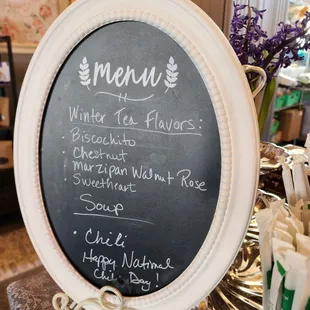 Menu
Winter Tea Flavors:
• Biscochito
• Chestnut
• Marzipan Walnut Rose
• Sweetheart
Soup
• Chili
Happy National
Chili Day!